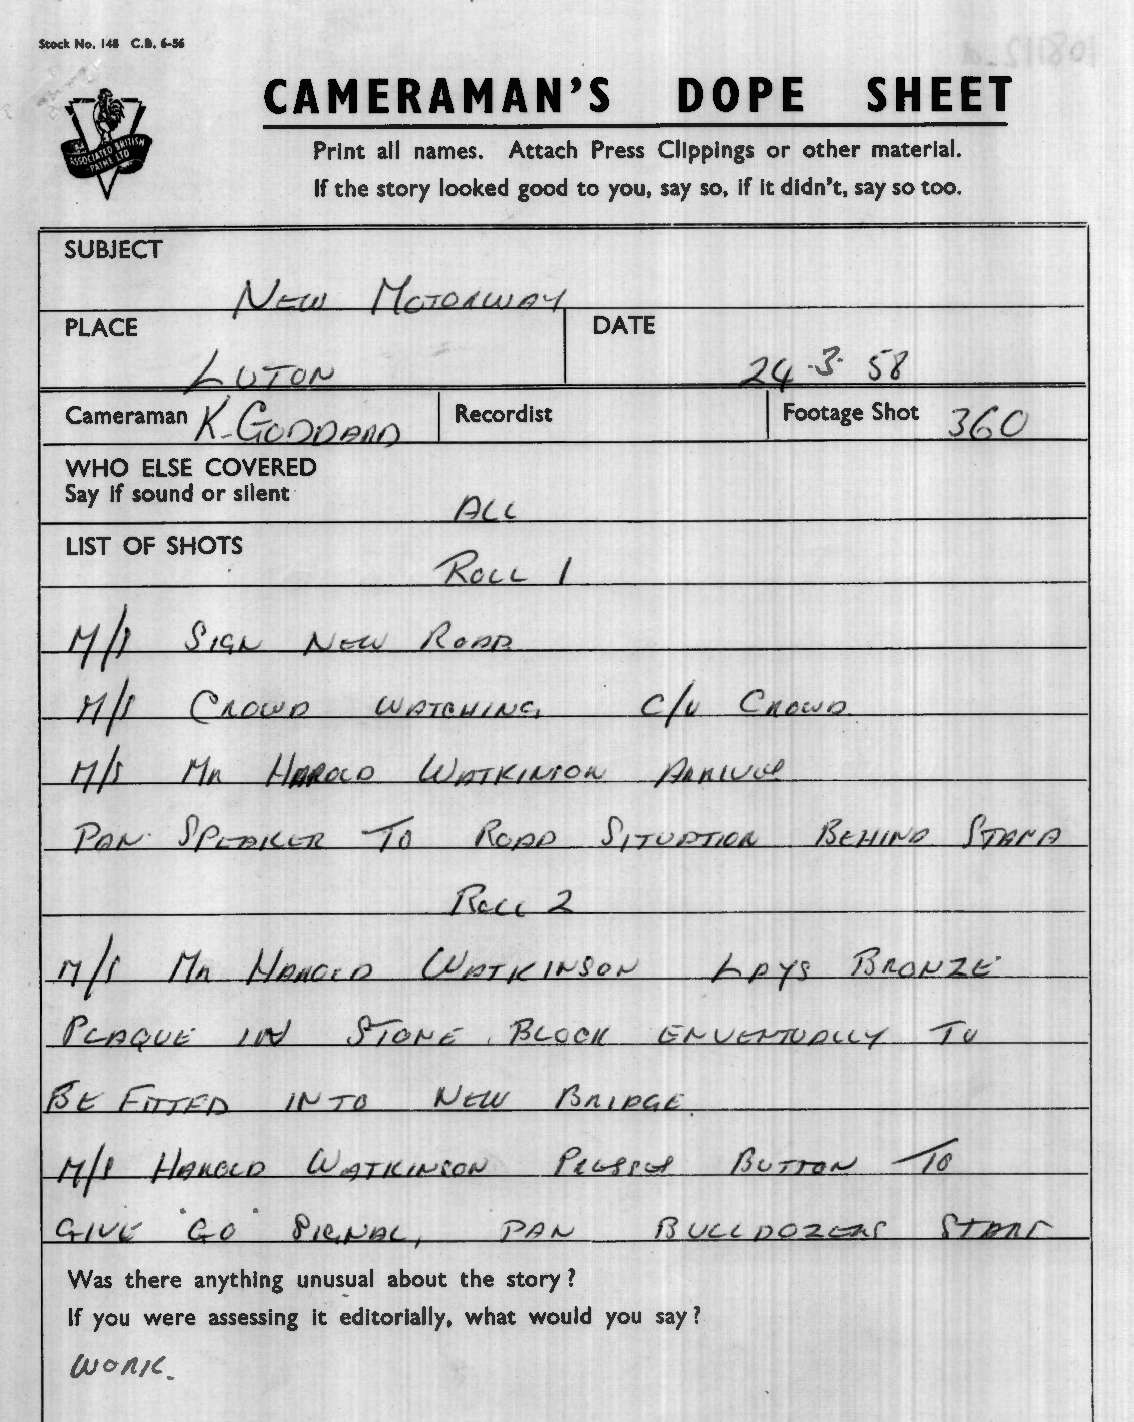 Stock No. 148 C.B. 6-56
ASSOCIATED BRITISH
PATHE LTD
CAMERAMAN'S DOPE SHEET
Print all names. Attach Press Clippings or other material.
If the story looked good to you, say so, if it didn't, say so too.
SUBJECT
NEW MOTORWAY
PLACE
DATE
LUTON
24.3.58
Cameraman K. GODDARD Recordist Footage Shot 360
WHO ELSE COVERED
Say if sound or silent
ALL
LIST OF SHOTS
ROLL 1
M/S SIGN NEW ROAD
M/S CROWD WATCHING, C/U CROWD.
M/S MR HAROLD WATKINSON ARRIVES
PAN SPEAKER TO ROAD SITUATION BEHIND STAND
ROLL 2
M/S MR HAROLD WATKINSON LAYS BRONZE
PLAQUE IN STONE BLOCK ENVENTUALLY TO
BE FITTED INTO NEW BRIDGE.
M/S HAROLD WATKINSON PRESSES BUTTON TO
GIVE "GO" SIGNAL, PAN BULLDOZERS START
Was there anything unusual about the story?
If you were assessing it editorially, what would you say?
WORK.